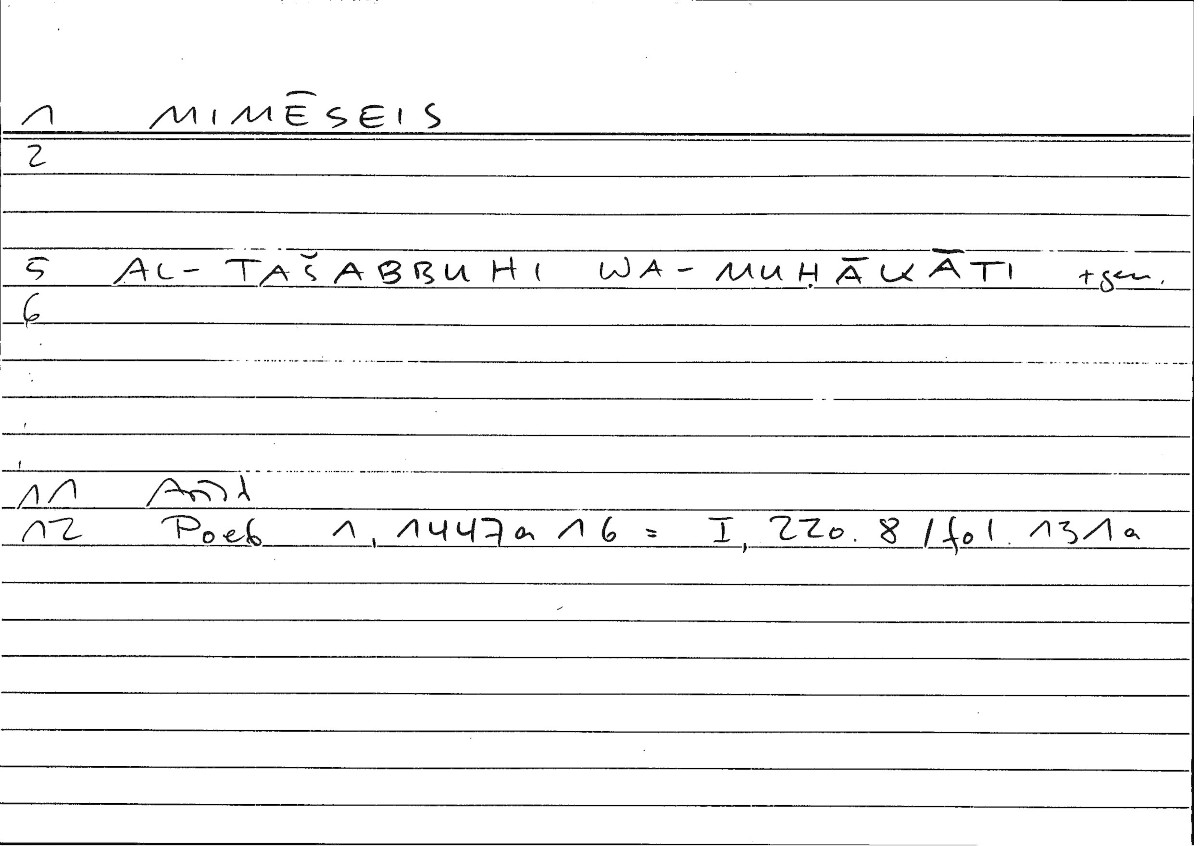 1 MIMĒSEIS
2
5 AL-TAŠABBUHI WA-MUḤĀKĀTI +gen.
6
11
12 Poet 1, 1447a 16 = I, 220.8 / fol. 131a